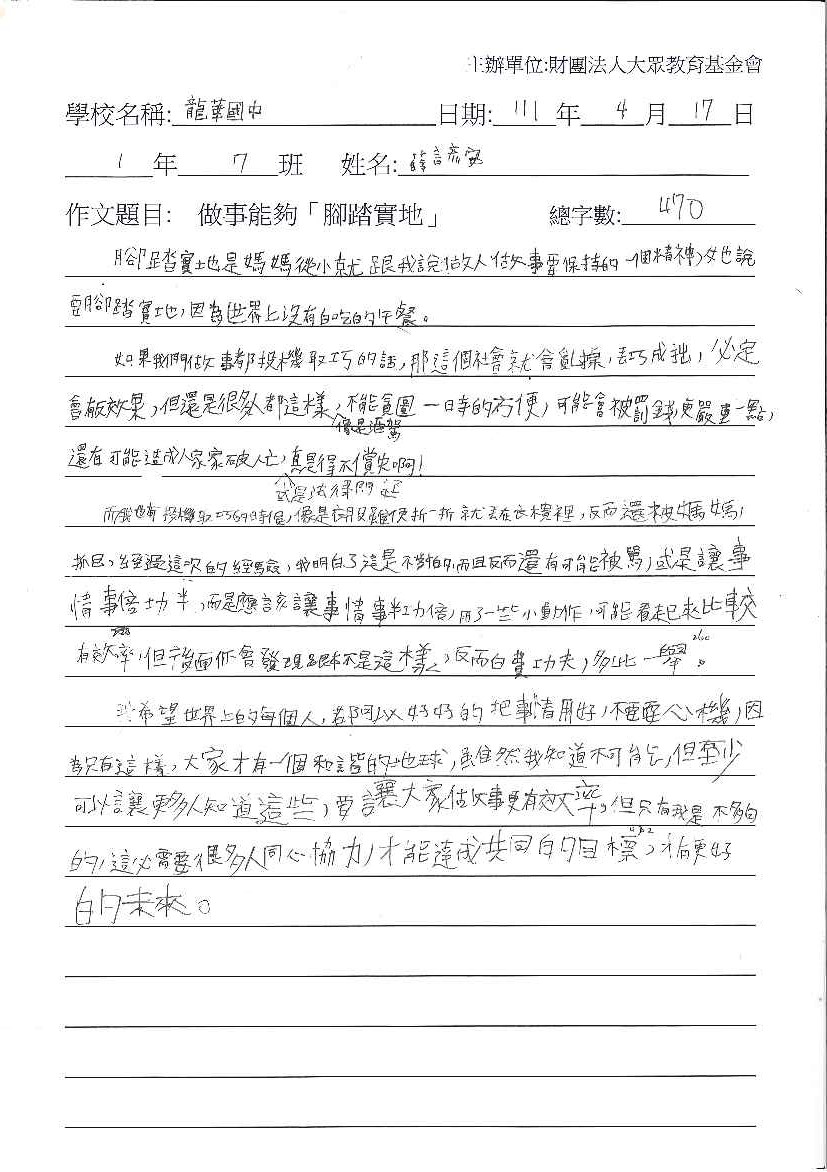 主辦單位:財團法人大眾教育基金會
學校名稱: 龍華國中 日期: 111 年 4 月 17 日
1 年 7 班 姓名:
作文題目: 做事能夠「腳踏實地」 總字數: 470
腳踏實地是媽媽從小就跟我說做人做事要保持的一個精神,她說
要腳踏實地,因為世界上沒有白吃的午餐。
如果我們做事都投機取巧的話,那這個社會就會亂操,弄巧成拙,必定
會有反效果,但還是很多人都這樣,不能貪圖一時的方便,可能會被罰錢,更嚴重一點,
像是酒駕
還有可能造成人家家破人亡,真是得不償失啊!
或是法律問題
而我也有投機取巧的時候,像是衣服隨便折一折就丟在衣櫃裡,反而還被媽媽
抓包,經過這次的經驗,我明白了這是不對的,而且反而還有可能被罵,或是讓事
情事倍功半,而是應該讓事情事半功倍,用了一些小動作,可能看起來比較
有效率,但後面你會發現根本不是這樣,反而白費功夫,多此一舉。
我希望世界上的每個人,都可以好好的把事情用好,不要耍心機,因
為只有這樣,大家才有一個和諧的地球,雖然我知道不可能,但至少
可以讓更多人知道這些,要讓大家做事更有效率,但只有我是不夠
的,這必需要很多人同心協力,才能達成共同的目標,才有更好
的未來。